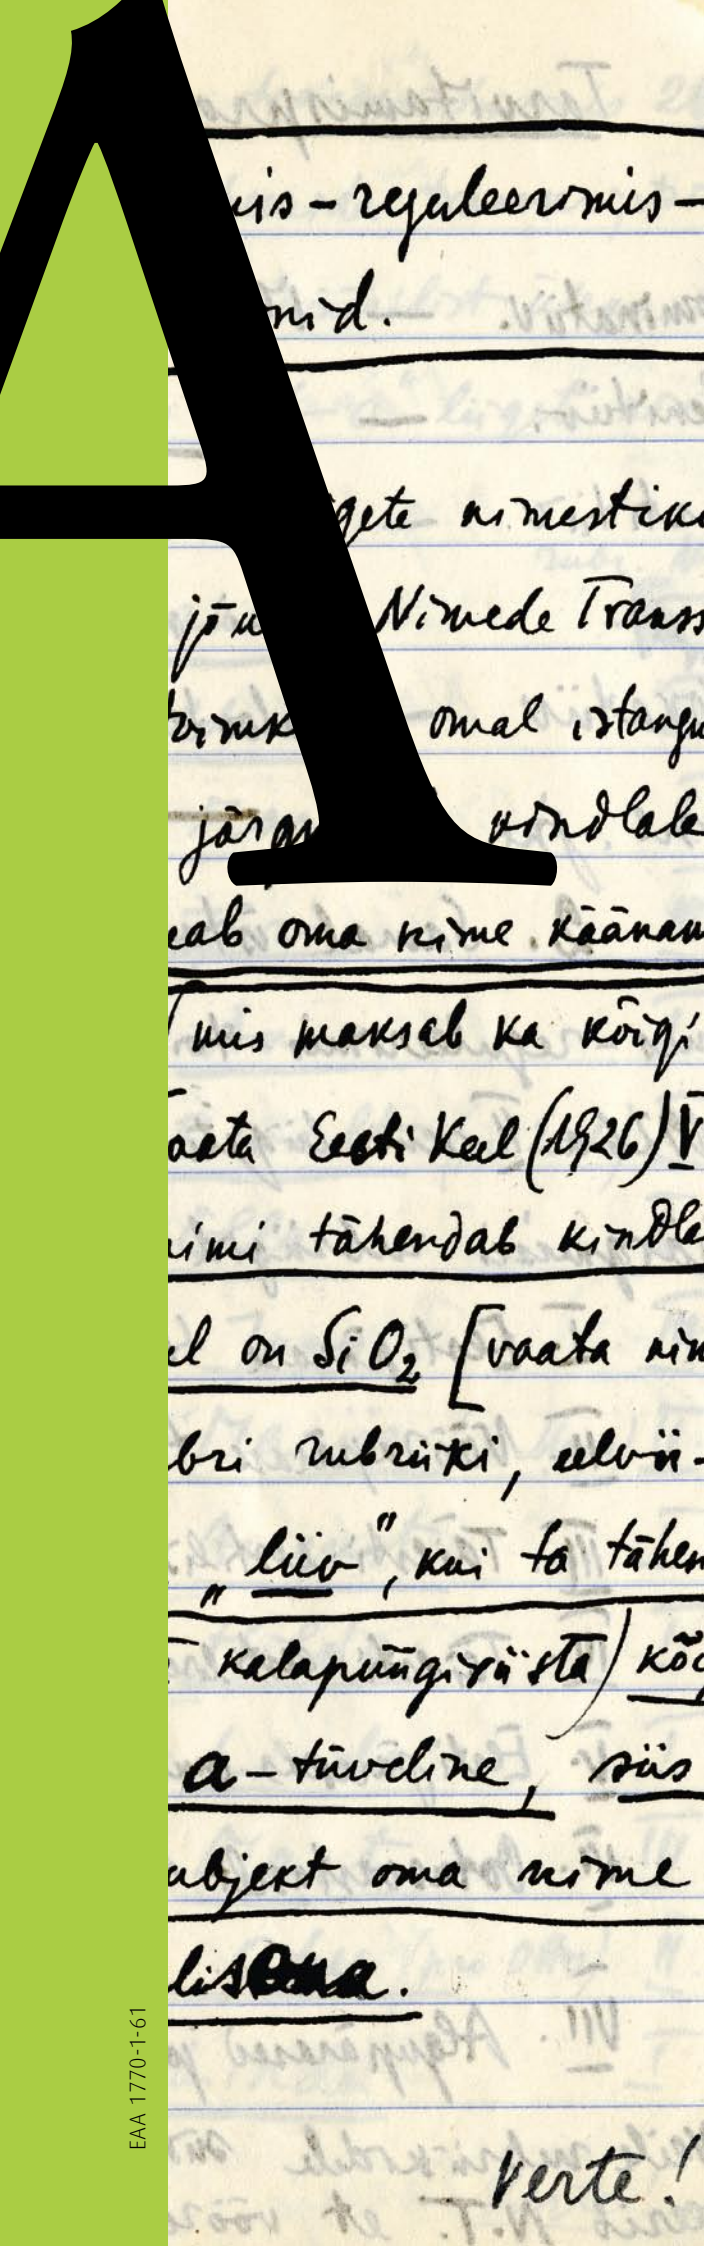 A
is-reguleerimis-
nid.
gete nimestiku
jõu Nimede Transs
toimk omal istangu
järgu kindlale
eab oma nime käänam
(mis maksab ka kõigi
aata Eesti Keel (1926) V
nimi tähendab kindla
el on SiO₂ [vaata nim
bri rubriiki, eelvii-
„liiv", kui ta tähen
kalapüügiriista) kõig
a-tüveline, siis
ubjekt oma nime
lisena.
Verte!
EAA 1770-1-61